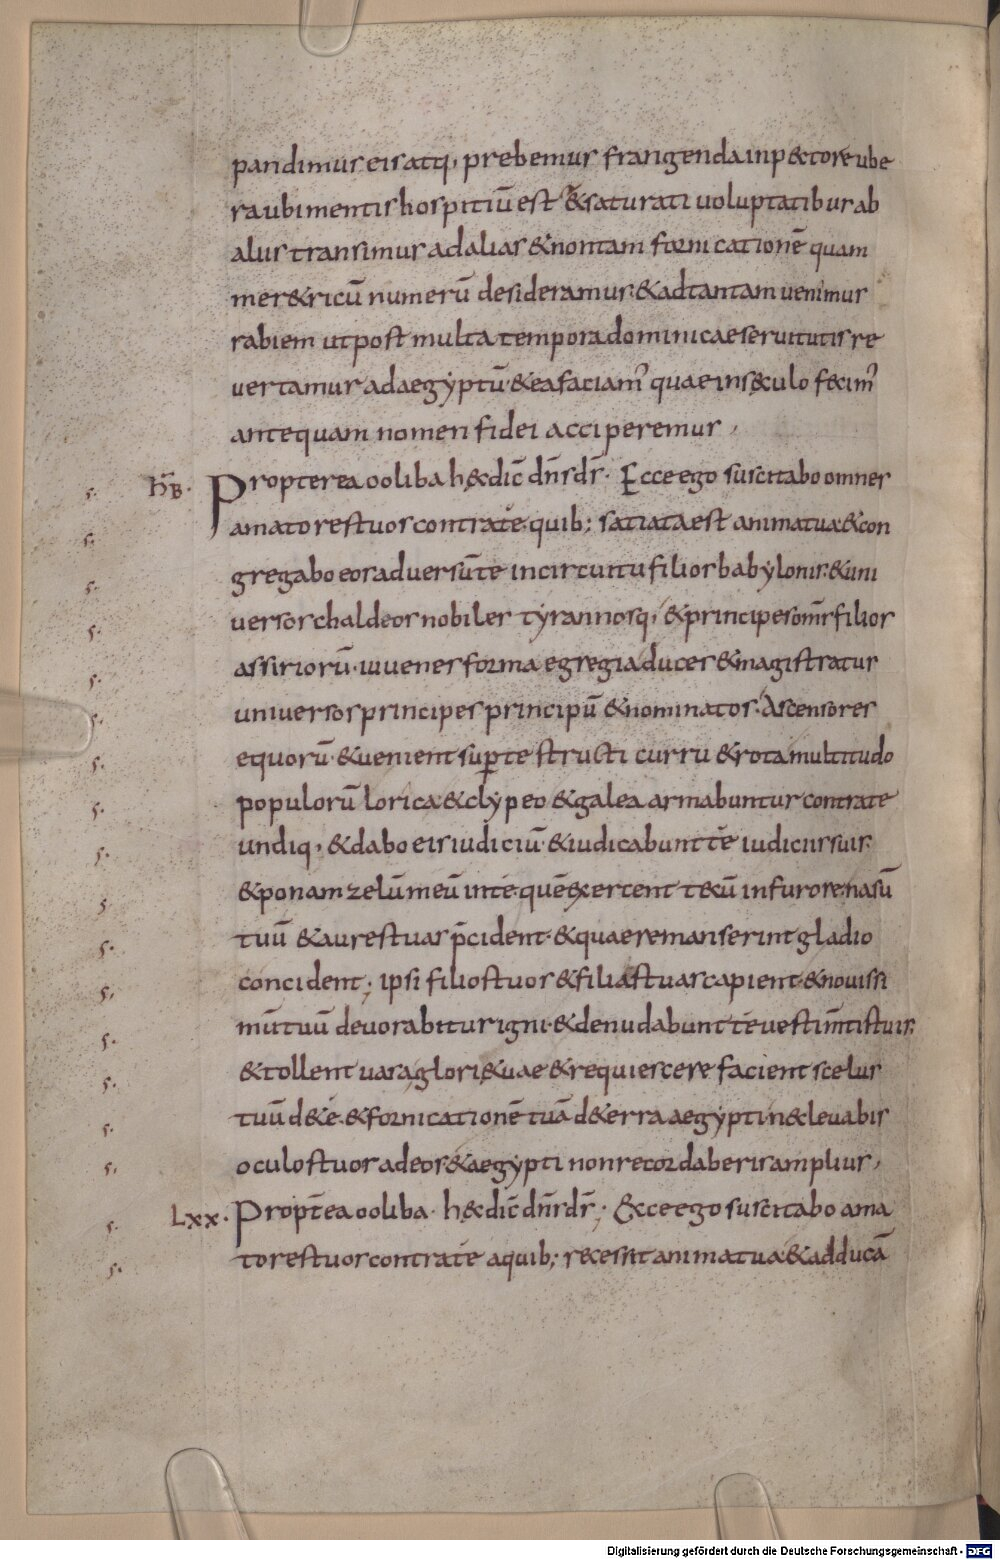 pandimus eis atq; prebemus frangenda in pectore ube
ra ubi mentis hospitiū est & saturati uoluptatibus ab
aliis transimus ad alias & non tam fornicationē quam
meretricū numerū desideramus· & ad tantam uenimus
rabiem ut post multa tempora dominicae seruitutis re
uertamur ad aegyptū· & ea faciam' quae in sęculo fecim'
antequam nomen fidei acciperemus,
HB· Propterea ooliba hęc dic̄ dn̄s ds̄· Ecce ego suscitabo omnes
amatores tuos contra te· quib; satiata est anima tua· & con
gregabo eos aduersū te in circuitu filios babylonis· & uni
uersos chaldeos nobiles tyrannosq; & principes om̄s filios
assiriorū· iuuenes forma egregia duces & magistratus
uniuersos principes principū & nominatos· Ascensores
equorū· & uenient sup te structi curru & rota multitudo
populorū lorica & clypeo & galea armabuntur contra te
undiq; & dabo eis iudiciū· & iudicabunt te iudiciis suis·
& ponam zelū meū in te· quē exercent tecū in furore· nasū
tuū & aures tuas p̄cident· & quae remanserint gladio
concident; ipsi filios tuos & filias tuas capient· & nouissi
mū tuū deuorabitur igni· & denudabunt te uestim̄tis tuis·
& tollent uasa glorię tuae & requiescere facient scelus
tuū de te· & fornicationē tuā de terra aegypti· nec leuabis
oculos tuos ad eos & aegypti non recordaberis amplius,
Lxx· Propt̄ea ooliba· hęc dic̄ dn̄s ds̄; Ecce ego suscitabo ama
tores tuos contra te a quib; recessit anima tua· & adducā
Digitalisierung gefördert durch die Deutsche Forschungsgemeinschaft - DFG